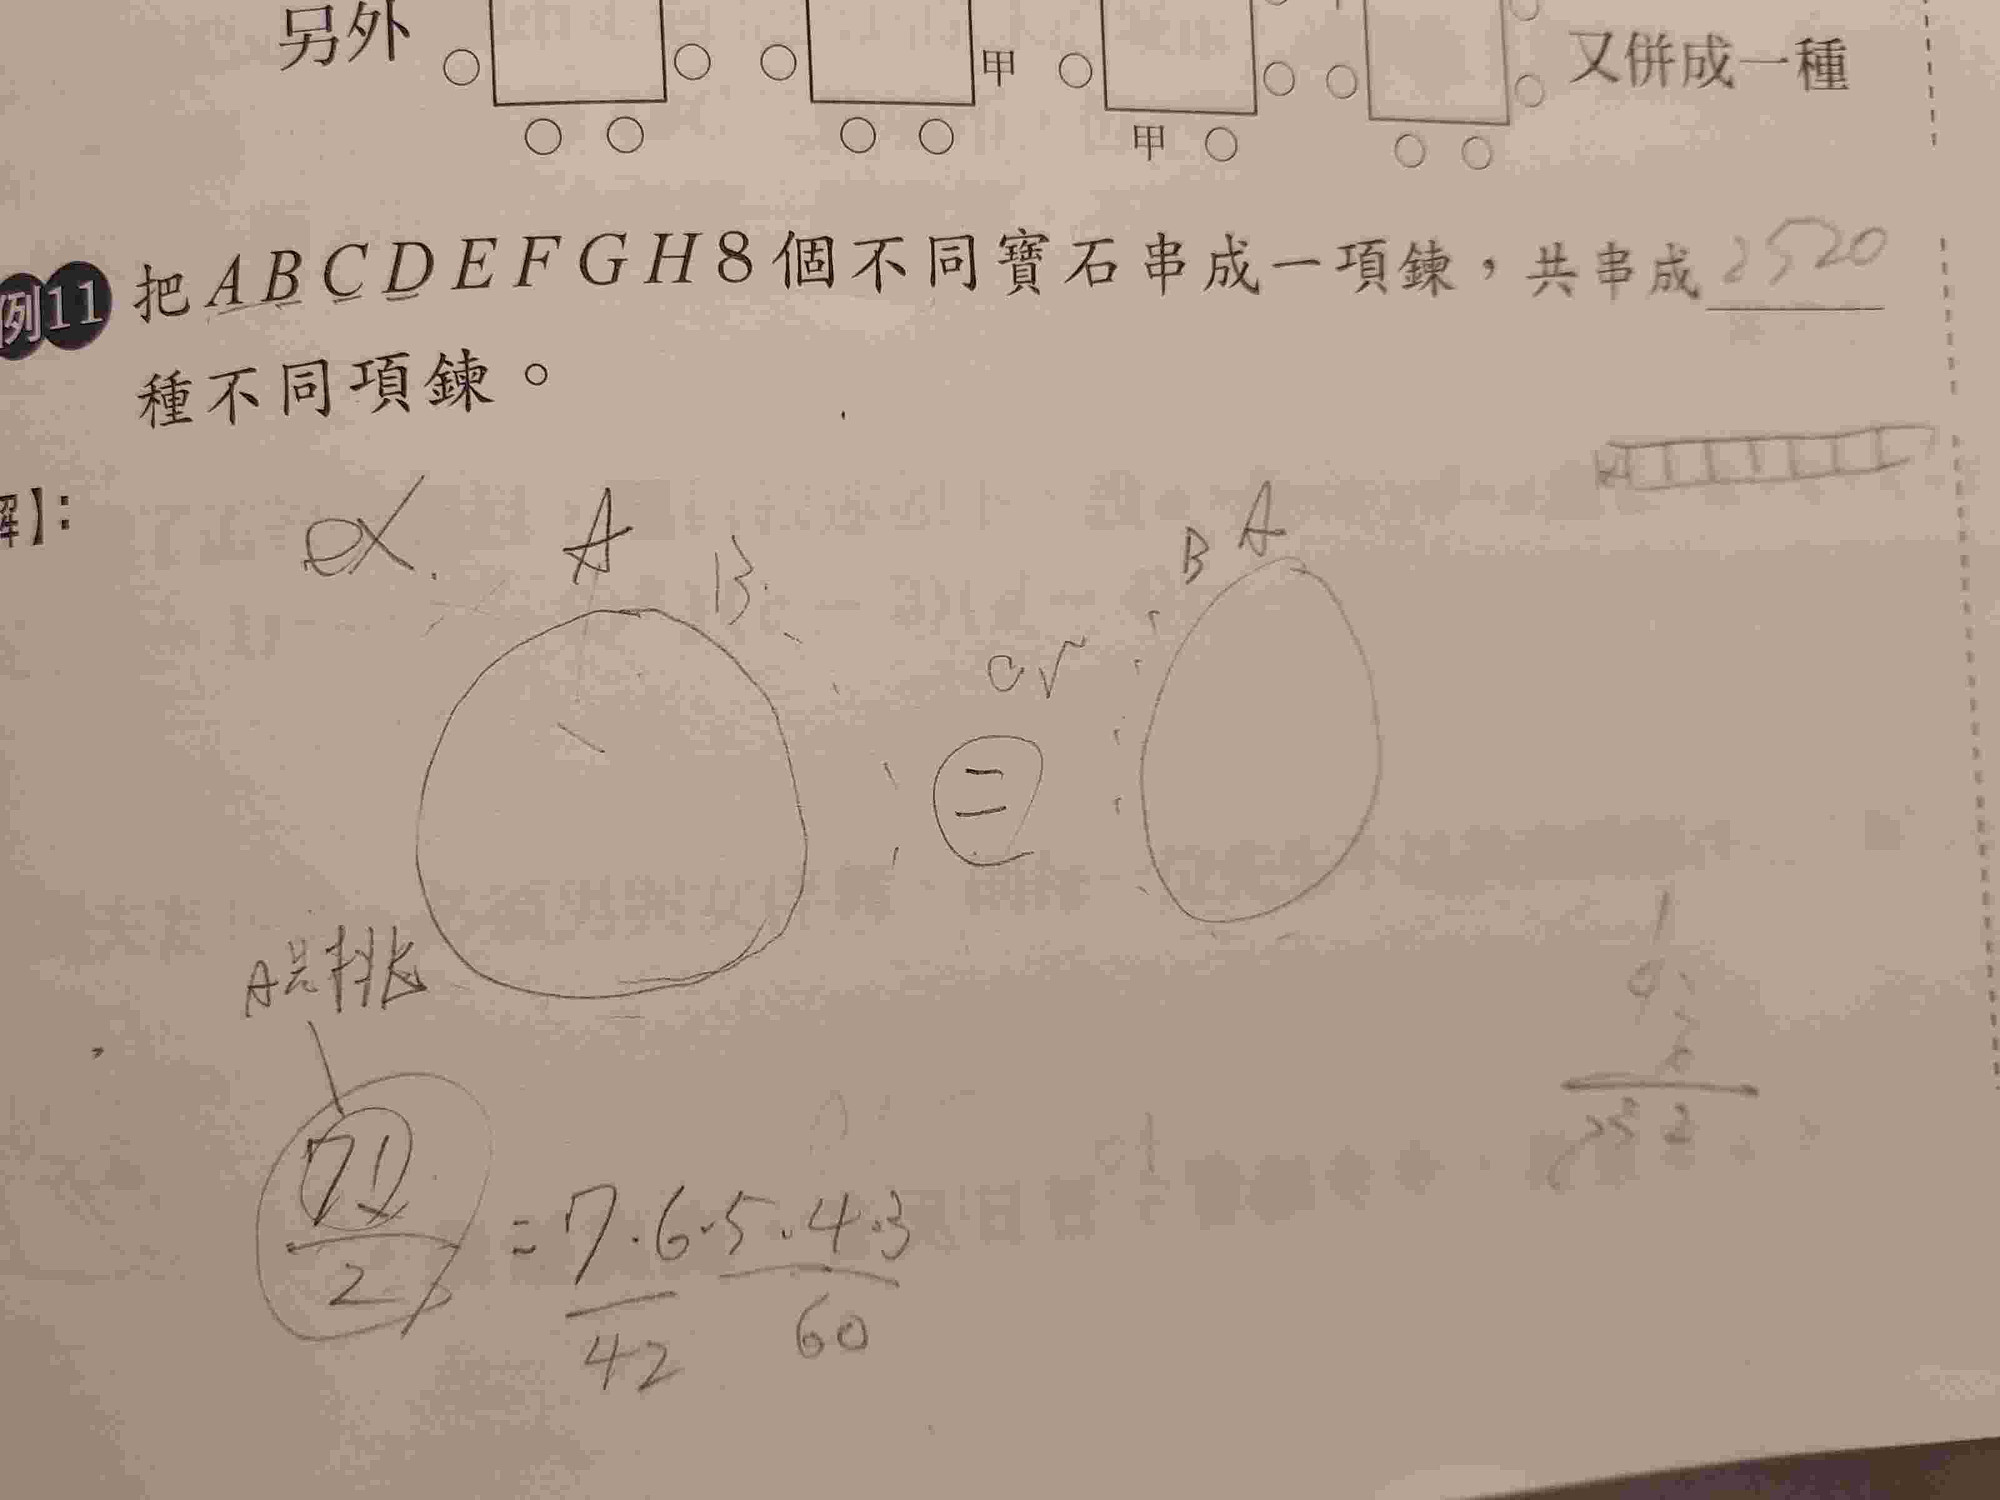 另外 甲 甲 又併成一種
例11 把ABCDEFGH8個不同寶石串成一項鍊，共串成 2520
種不同項鍊。
解】：
ex. A B B A
or
=
A先挑
7!/2 = 7·6·5·4·3
42 60